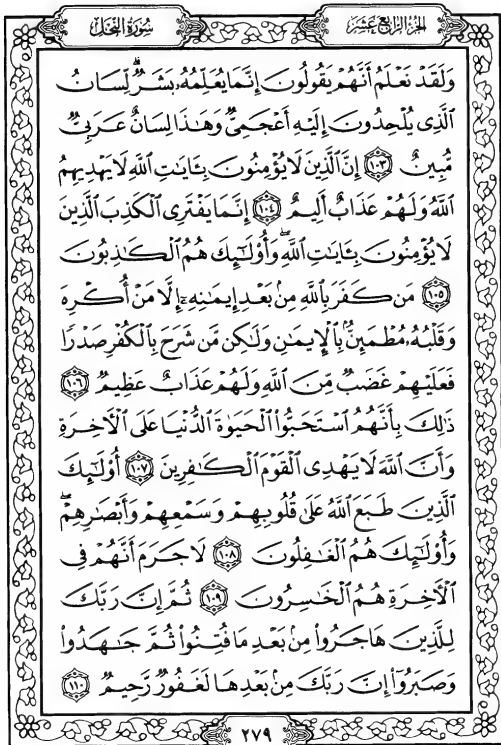 الجزء الرابع عشر
سورة النحل
وَلَقَدْ نَعْلَمُ أَنَّهُمْ يَقُولُونَ إِنَّمَا يُعَلِّمُهُۥ بَشَرٌۗ لِّسَانُ
ٱلَّذِى يُلْحِدُونَ إِلَيْهِ أَعْجَمِىٌّ وَهَٰذَا لِسَانٌ عَرَبِىٌّ
مُّبِينٌ ١٠٣ إِنَّ ٱلَّذِينَ لَا يُؤْمِنُونَ بِـَٔايَٰتِ ٱللَّهِ لَا يَهْدِيهِمُ
ٱللَّهُ وَلَهُمْ عَذَابٌ أَلِيمٌ ١٠٤ إِنَّمَا يَفْتَرِى ٱلْكَذِبَ ٱلَّذِينَ
لَا يُؤْمِنُونَ بِـَٔايَٰتِ ٱللَّهِۖ وَأُو۟لَٰٓئِكَ هُمُ ٱلْكَٰذِبُونَ
١٠٥ مَن كَفَرَ بِٱللَّهِ مِنۢ بَعْدِ إِيمَٰنِهِۦٓ إِلَّا مَنْ أُكْرِهَ
وَقَلْبُهُۥ مُطْمَئِنٌّۢ بِٱلْإِيمَٰنِ وَلَٰكِن مَّن شَرَحَ بِٱلْكُفْرِ صَدْرًا
فَعَلَيْهِمْ غَضَبٌ مِّنَ ٱللَّهِ وَلَهُمْ عَذَابٌ عَظِيمٌ ١٠٦
ذَٰلِكَ بِأَنَّهُمُ ٱسْتَحَبُّوا۟ ٱلْحَيَوٰةَ ٱلدُّنْيَا عَلَى ٱلْـَٔاخِرَةِ
وَأَنَّ ٱللَّهَ لَا يَهْدِى ٱلْقَوْمَ ٱلْكَٰفِرِينَ ١٠٧ أُو۟لَٰٓئِكَ
ٱلَّذِينَ طَبَعَ ٱللَّهُ عَلَىٰ قُلُوبِهِمْ وَسَمْعِهِمْ وَأَبْصَٰرِهِمْۖ
وَأُو۟لَٰٓئِكَ هُمُ ٱلْغَٰفِلُونَ ١٠٨ لَا جَرَمَ أَنَّهُمْ فِى
ٱلْـَٔاخِرَةِ هُمُ ٱلْخَٰسِرُونَ ١٠٩ ثُمَّ إِنَّ رَبَّكَ
لِلَّذِينَ هَاجَرُوا۟ مِنۢ بَعْدِ مَا فُتِنُوا۟ ثُمَّ جَٰهَدُوا۟
وَصَبَرُوٓا۟ إِنَّ رَبَّكَ مِنۢ بَعْدِهَا لَغَفُورٌ رَّحِيمٌ ١١٠
٢٧٩